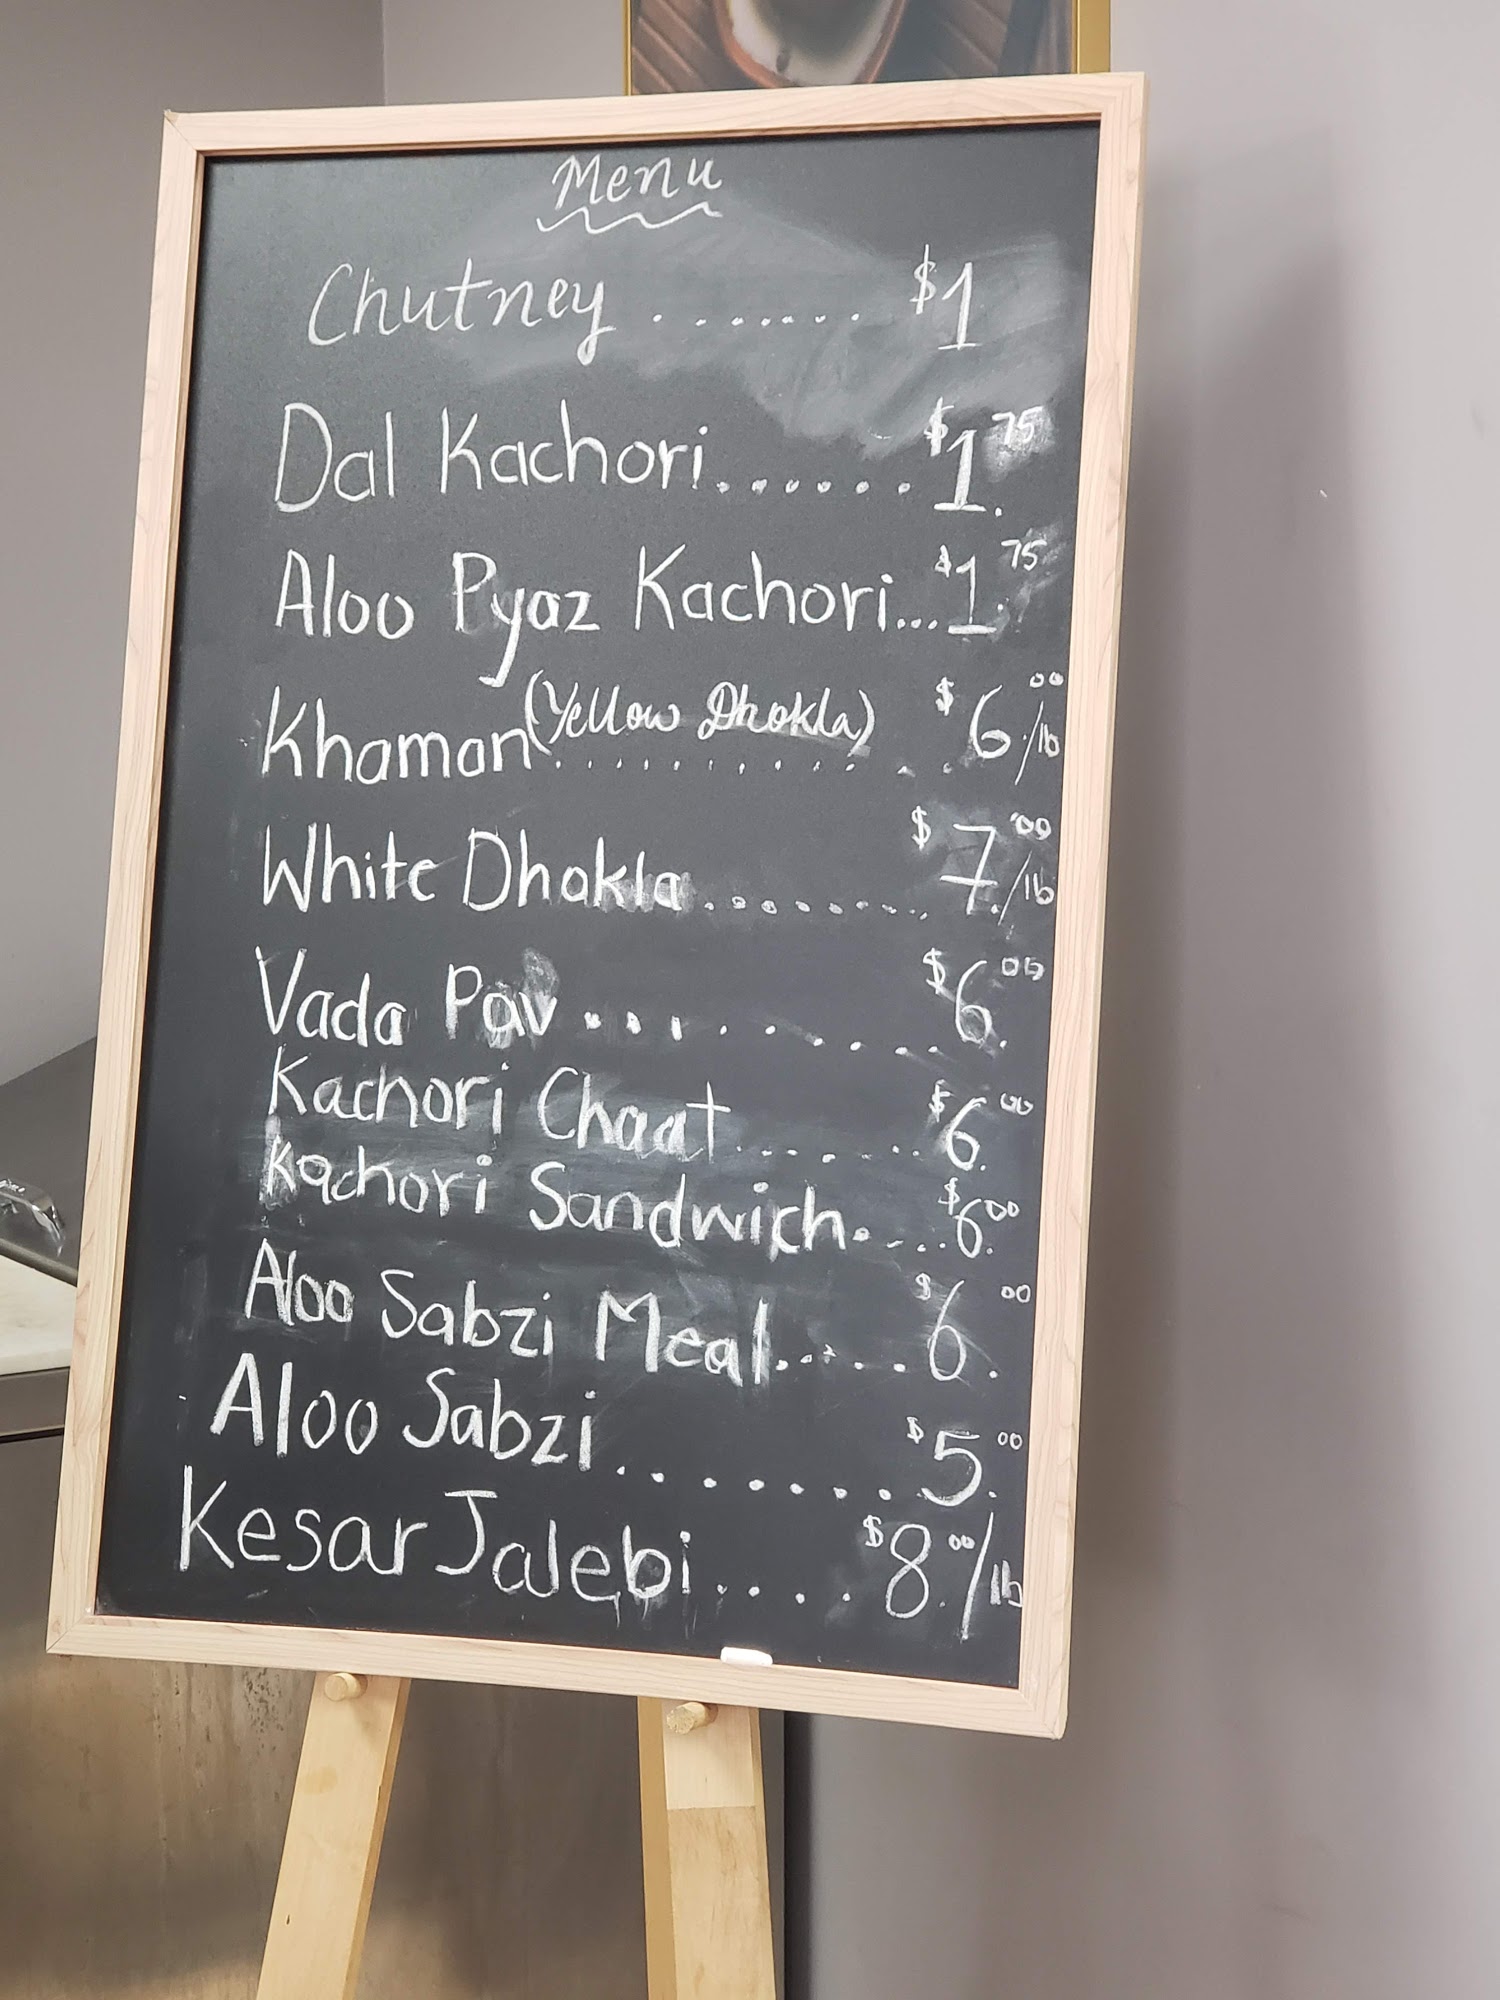 Menu
Chutney ....... $1
Dal Kachori....... $1.75
Aloo Pyaz Kachori... $1.75
Khaman (Yellow Dhokla) ........... $6.00/lb
White Dhokla......... $7.00/lb
Vada Pav .......... $6.00
Kachori Chaat....... $6.00
Kachori Sandwich.... $6.00
Aloo Sabzi Meal..... $6.00
Aloo Sabzi ....... $5.00
Kesar Jalebi .... $8.00/lb